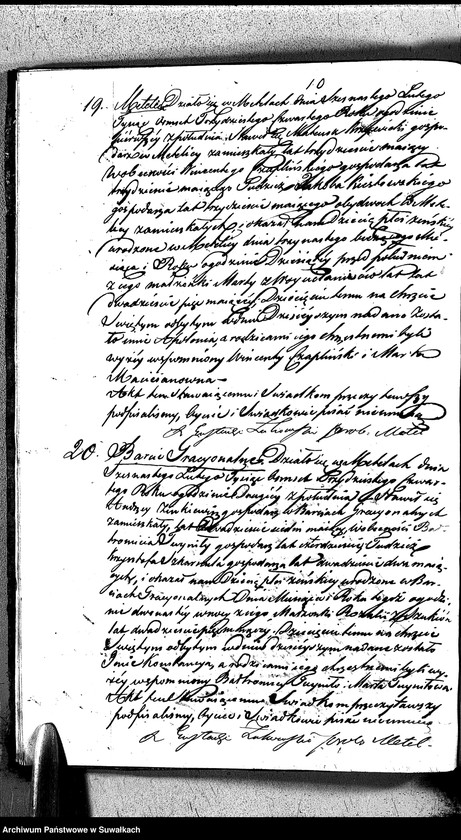 10
19. Metele Działo się w Metelach dnia Szesnastego Lutego
Tysiąc ośmset Trzydziestego czwartego Roku o godzinie
pierwszej z południa, Stawił się Mateusz gospo-
darz w Metelicy zamieszkały lat trzydzieście mający
w obecności Wincentego Czaplińskiego gospodarza lat
trzydzieście mającego tudzież Jakóba Kozłowskiego
gospodarza lat trzydzieście mającego obydwóch w Mete-
licy zamieszkałych, i okazał nam Dziecię płci żeńskiej
urodzone w Metelicy dnia trzynastego bieżącego Mie-
siąca i Roku o godzinie Dziesiątej przed południem
z jego małżonki Marty z lat
dwadzieścia pięć mającej. Dziecięciu temu na chrzcie
Świętym odbytym w dniu Dzisiejszym nadane zosta-
ło imie Apolonia a rodzicami jego chrzestnemi byli
wyżej wspomniony Wincenty Czapliński i Marta
Maciejanowna
Akt ten stawającemu i Świadkom przeczytawszy
podpisaliśmy, Ojciec i Świadkowie pisać nieumieją
X Eustachi Żukowski prob. Metel
20. Barcie Gracyonalne. Działo się w Metelach dnia
Szesnastego Lutego Tysiąc ośmset Trzydziestego czwar-
tego Roku o godzinie Drugiej z południa, Stawił się
Andrzej Żukiewicz gospodarz w Barciach Gracyonalnych
zamieszkały, lat dwadzieścia siedm mający, w obecności Bar-
tłomieja gospodarza lat czterdzieści, Tudzież
Krzysztofa gospodarza lat dwadzieścia dwa mają-
cych, i okazał nam Dziecię płci żeńskiej urodzone w Bar-
ciach Gracyonalnych Dnia Miesiąca i Roku o godzi-
nie dwunastej w nocy z jego Małżonki Rozalii
lat dwadzieścia mającej. Dziecięciu temu na chrzcie
Świętym odbytym w dniu Dzisiejszym nadane zostało
Imie Konstancya, a rodzicami jego chrzestnemi byli wy-
żej wspomniony Bartłomiej i Marta
Akt ten stawającemu i Świadkom przeczytawszy
podpisaliśmy, Ojciec i Świadkowie pisać nieumieją
X Eustachi Żukowski prob. Metel.
Archiwum Państwowe w Suwałkach